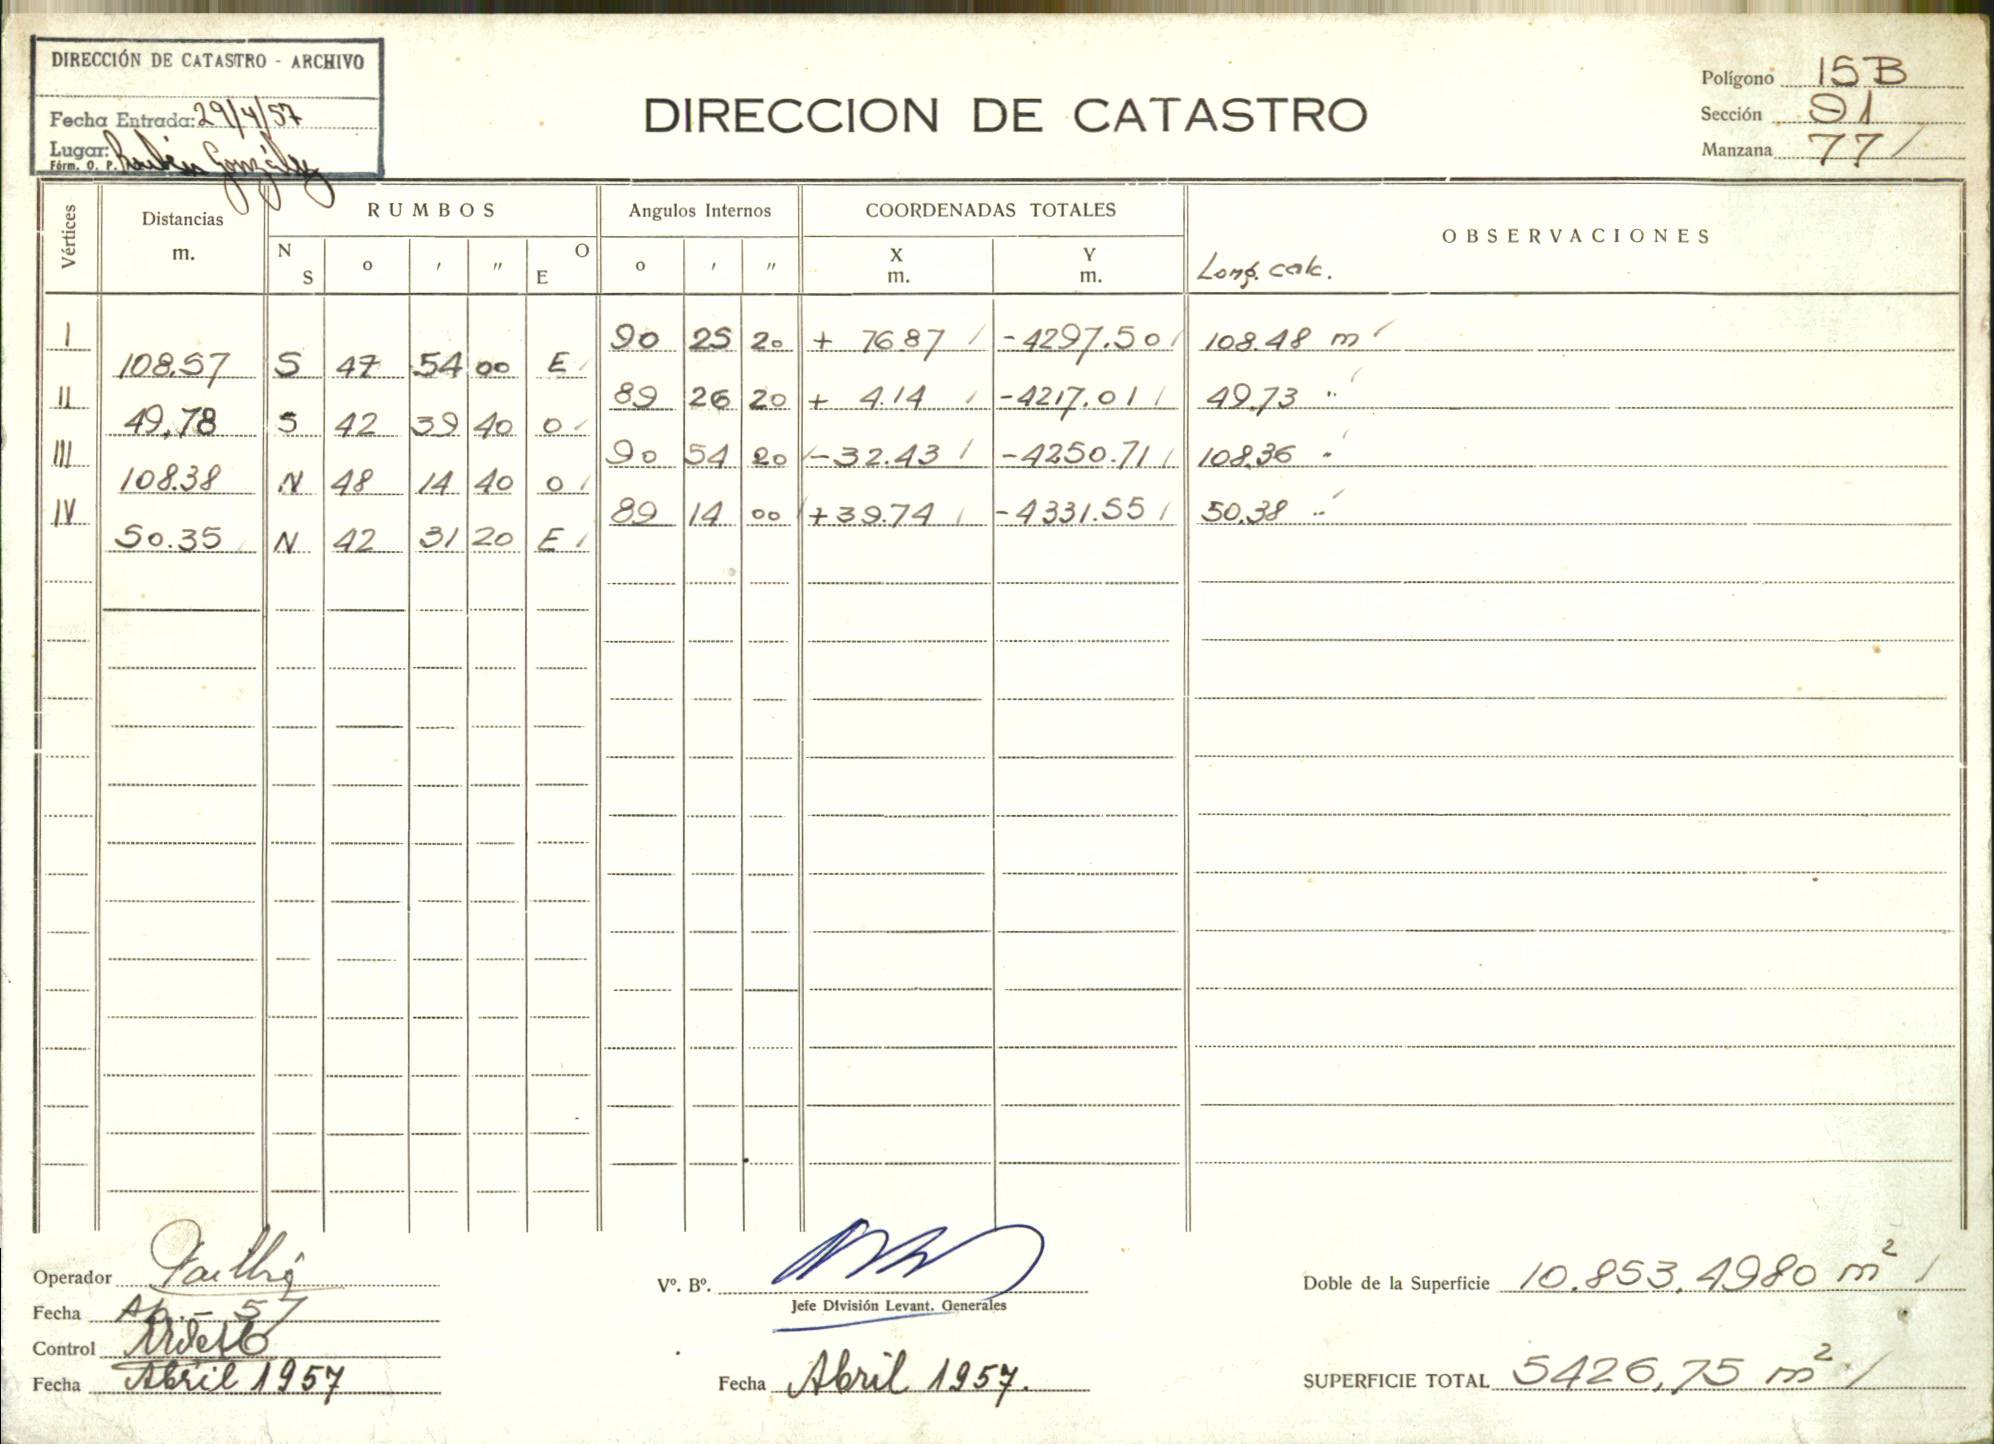 DIRECCIÓN DE CATASTRO - ARCHIVO
Fecha Entrada: 29/4/57
Lugar: Rubén González
Fórm. O. P.
DIRECCION DE CATASTRO
Polígono 15B
Sección 91
Manzana 77 /
Vértices Distancias m. RUMBOS Angulos Internos COORDENADAS TOTALES OBSERVACIONES
N S o ' " O E o ' " X m. Y m. Long. calc.
I 90 25 20 + 76.87 / -4297.50 / 108.48 m
108.57 S 47 54 00 E
II 89 26 20 + 4.14 / -4217.01 / 49.73 "
49.78 S 42 39 40 O
III 90 54 20 -32.43 / -4250.71 / 108.36 "
108.38 N 48 14 40 O
IV 89 14 00 +39.74 / -4331.55 / 50.38 "
50.35 N 42 31 20 E
Operador
Fecha Ab. - 57
Control
Fecha Abril 1957
Vº. Bº.
Jefe División Levant. Generales
Fecha Abril 1957.
Doble de la Superficie 10.853,4980 m² /
SUPERFICIE TOTAL 5426,75 m² /